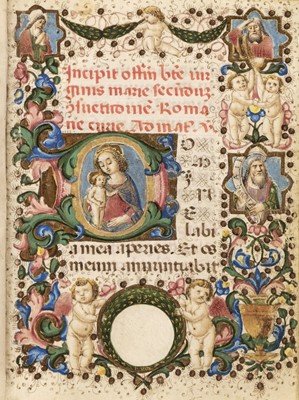 Incipit offin bte uir
ginis marie secunduz
ɔsuetudinē. Roma
ne curie. Ad mat. V
D O
M
I
N
E labi
a mea aperies. Et os
meum annuntiabit